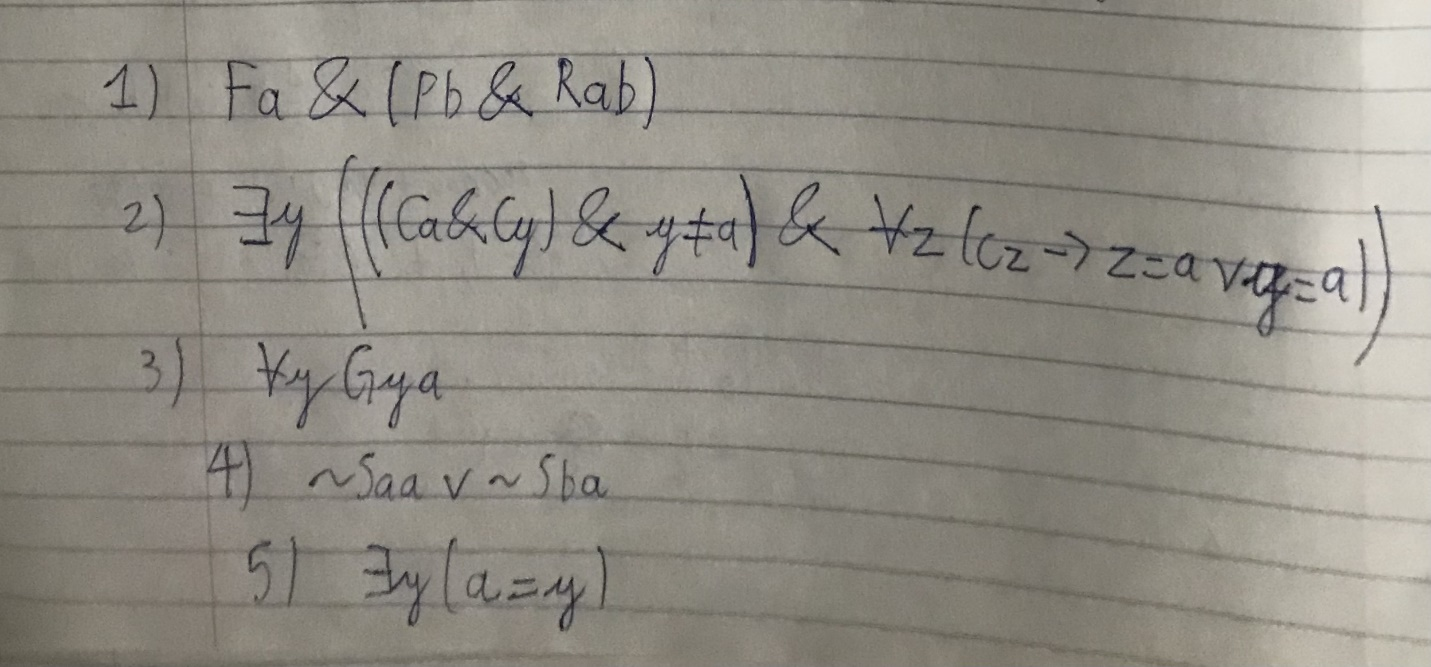 1) Fa & (Pb & Rab)
2) ∃y (((Ca & Cy) & y≠a) & ∀z (Cz → z=a ∨ y=a))
3) ∀y Gya
4) ~Saa ∨ ~Sba
5) ∃y (a=y)